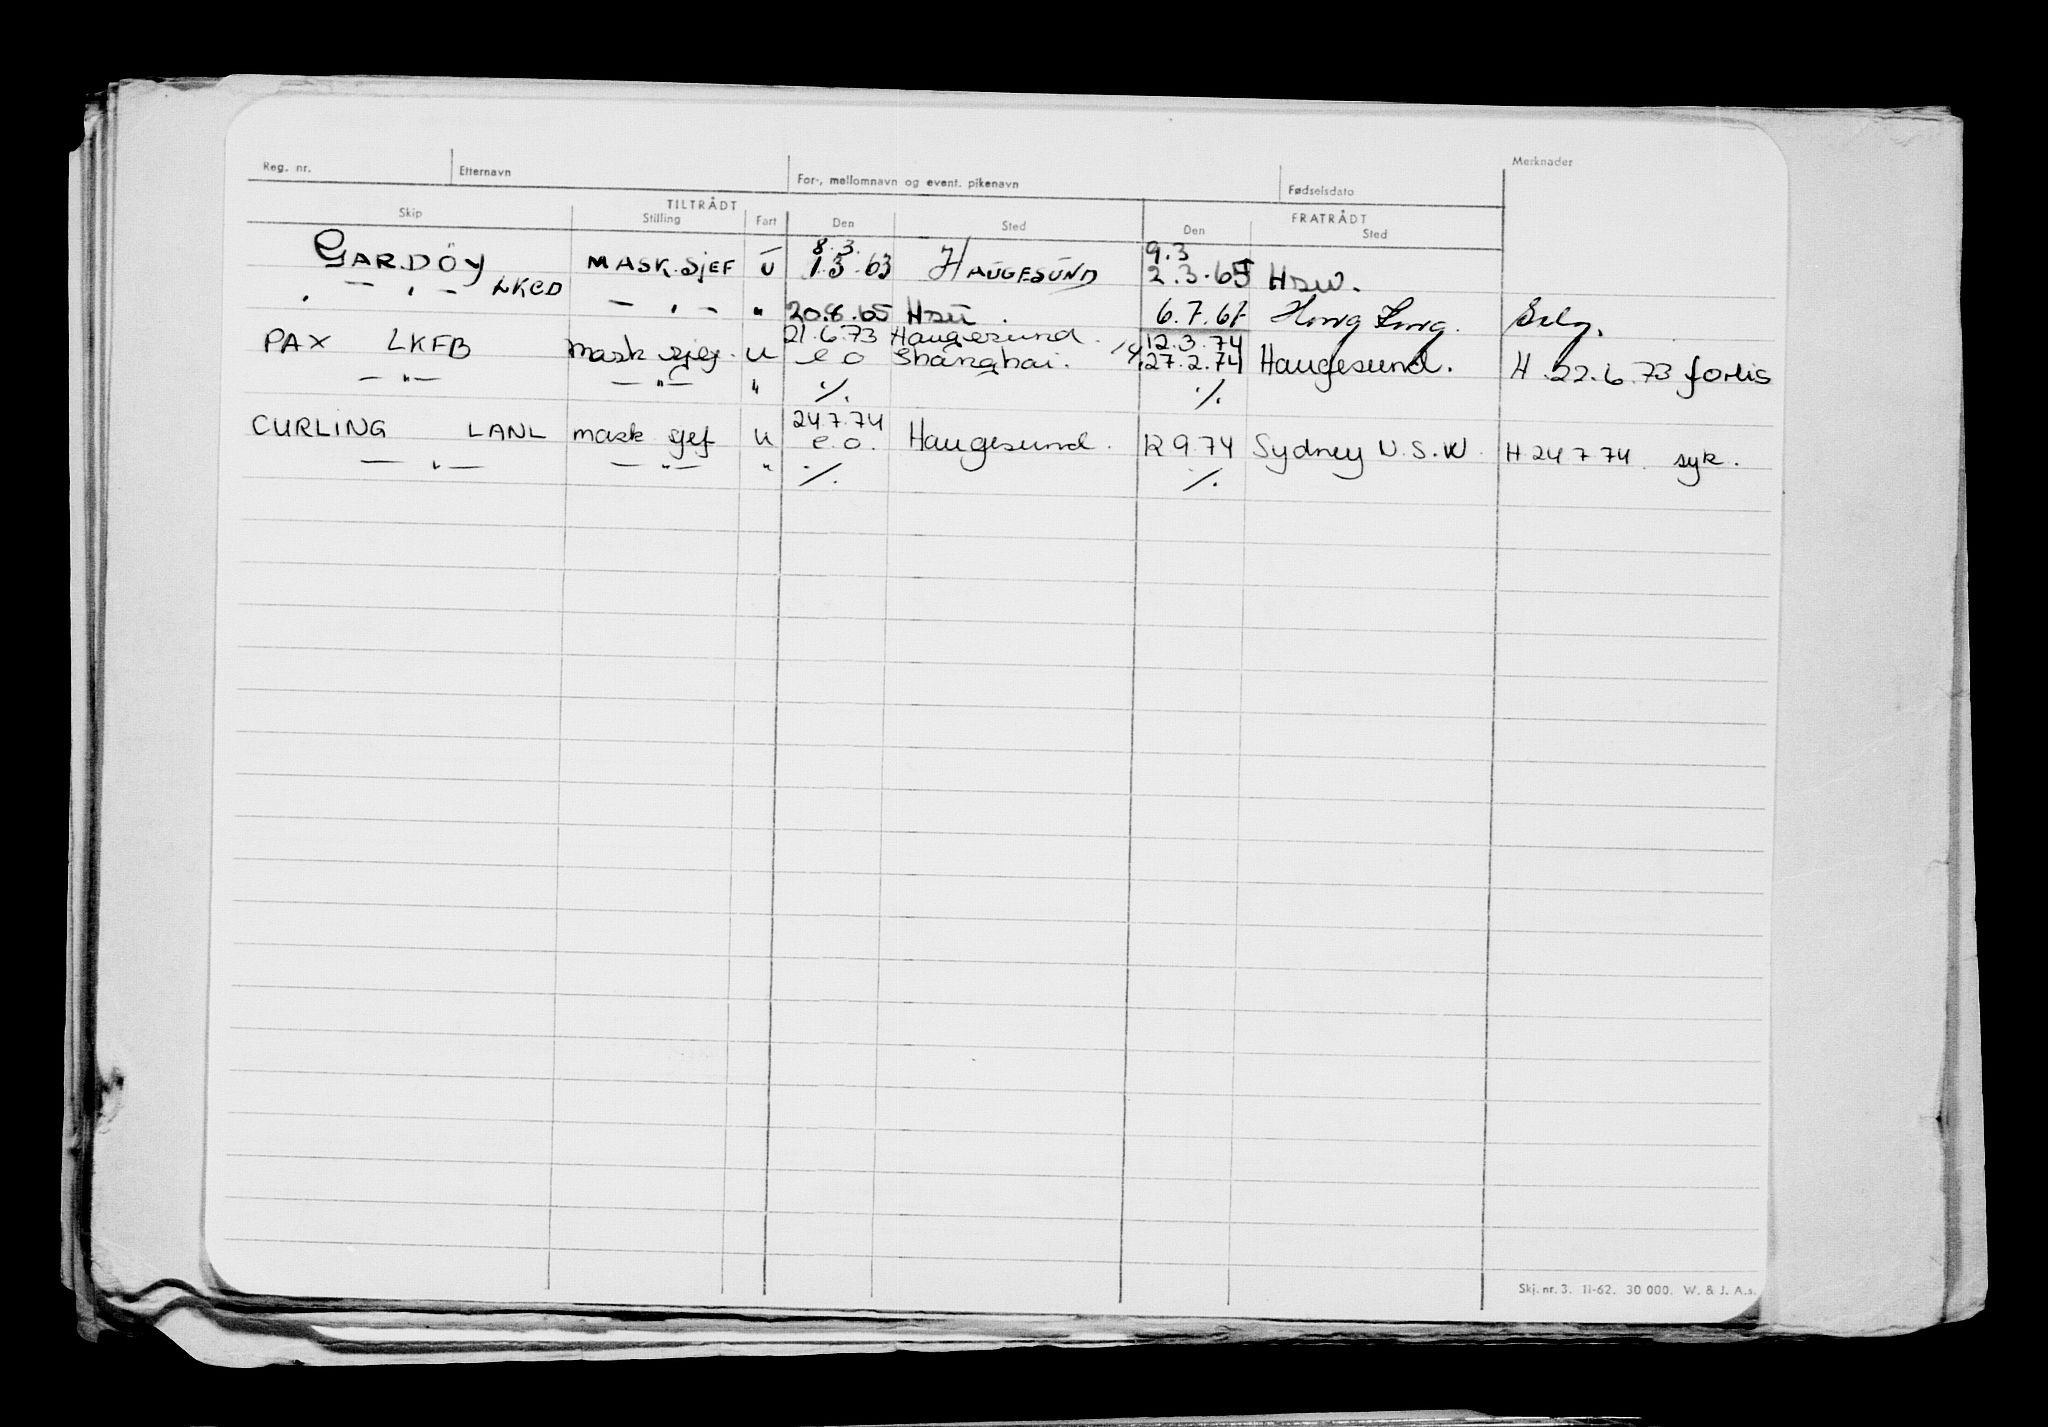 Reg. nr. Etternavn For-, mellomnavn og event. pikenavn Fødselsdato Merknader
TILTRÅDT FRATRÅDT
Skip Stilling Fart Den Sted Den Sted
8.3. 9.3
GARDÖY MASK.SJEF U 1.3.63 HAUGESUND 2.3.65
LKCD
— " — — " — " 20.8.65 6.7.67 Hong Kong. Selg.
21.6.73 Haugesund. 12.3.74
PAX LKFB mask sjef. U e o Shanghai. 27.2.74 Haugesund. H 22.6.73 forlis
— " — — " — " ./. ./.
24.7.74
CURLING LANL mask sjef U e.o. Haugesund. 12 9.74 Sydney N.S.W. H 24 7 74 syk.
— " — — " — " ./. ./.
Skj. nr. 3. 11-62. 30 000. W. & J. A.s.